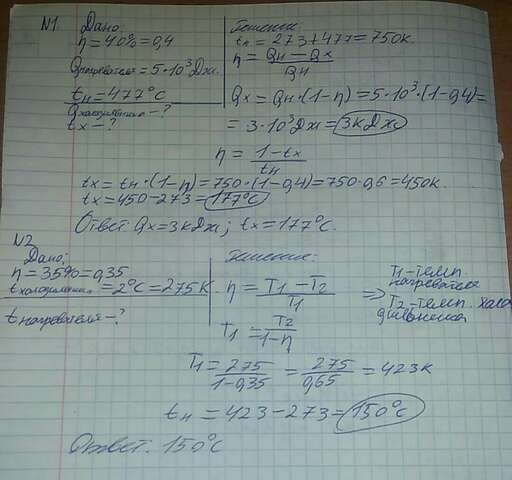 N1. Дано:
η = 40% = 0,4
Qнагревателя = 5·10³Дж.
tн = 477°C
Qхолодильник - ?
tx - ?
Решение:
tн = 273+477 = 750К.
η = Qн - Qx / Qн
Qx = Qн·(1-η) = 5·10³·(1-0,4) =
= 3·10³Дж = 3кДж
η = 1-tx / tн
tx = tн·(1-η) = 750·(1-0,4) = 750·0,6 = 450К.
tx = 450-273 = 177°C
Ответ: Qx = 3кДж; tx = 177°C.
N2.
Дано:
η = 35% = 0,35
tхолодильник = 2°C = 275К.
tнагревателя - ?
Решение:
η = T1 - T2 / T1 =>
T1-темп.
нагревателя
T2-темп. холо
дильника
T1 = T2 / 1-η
T1 = 275 / 1-0,35 = 275 / 0,65 = 423К
tн = 423-273 = 150°C
Ответ: 150°C